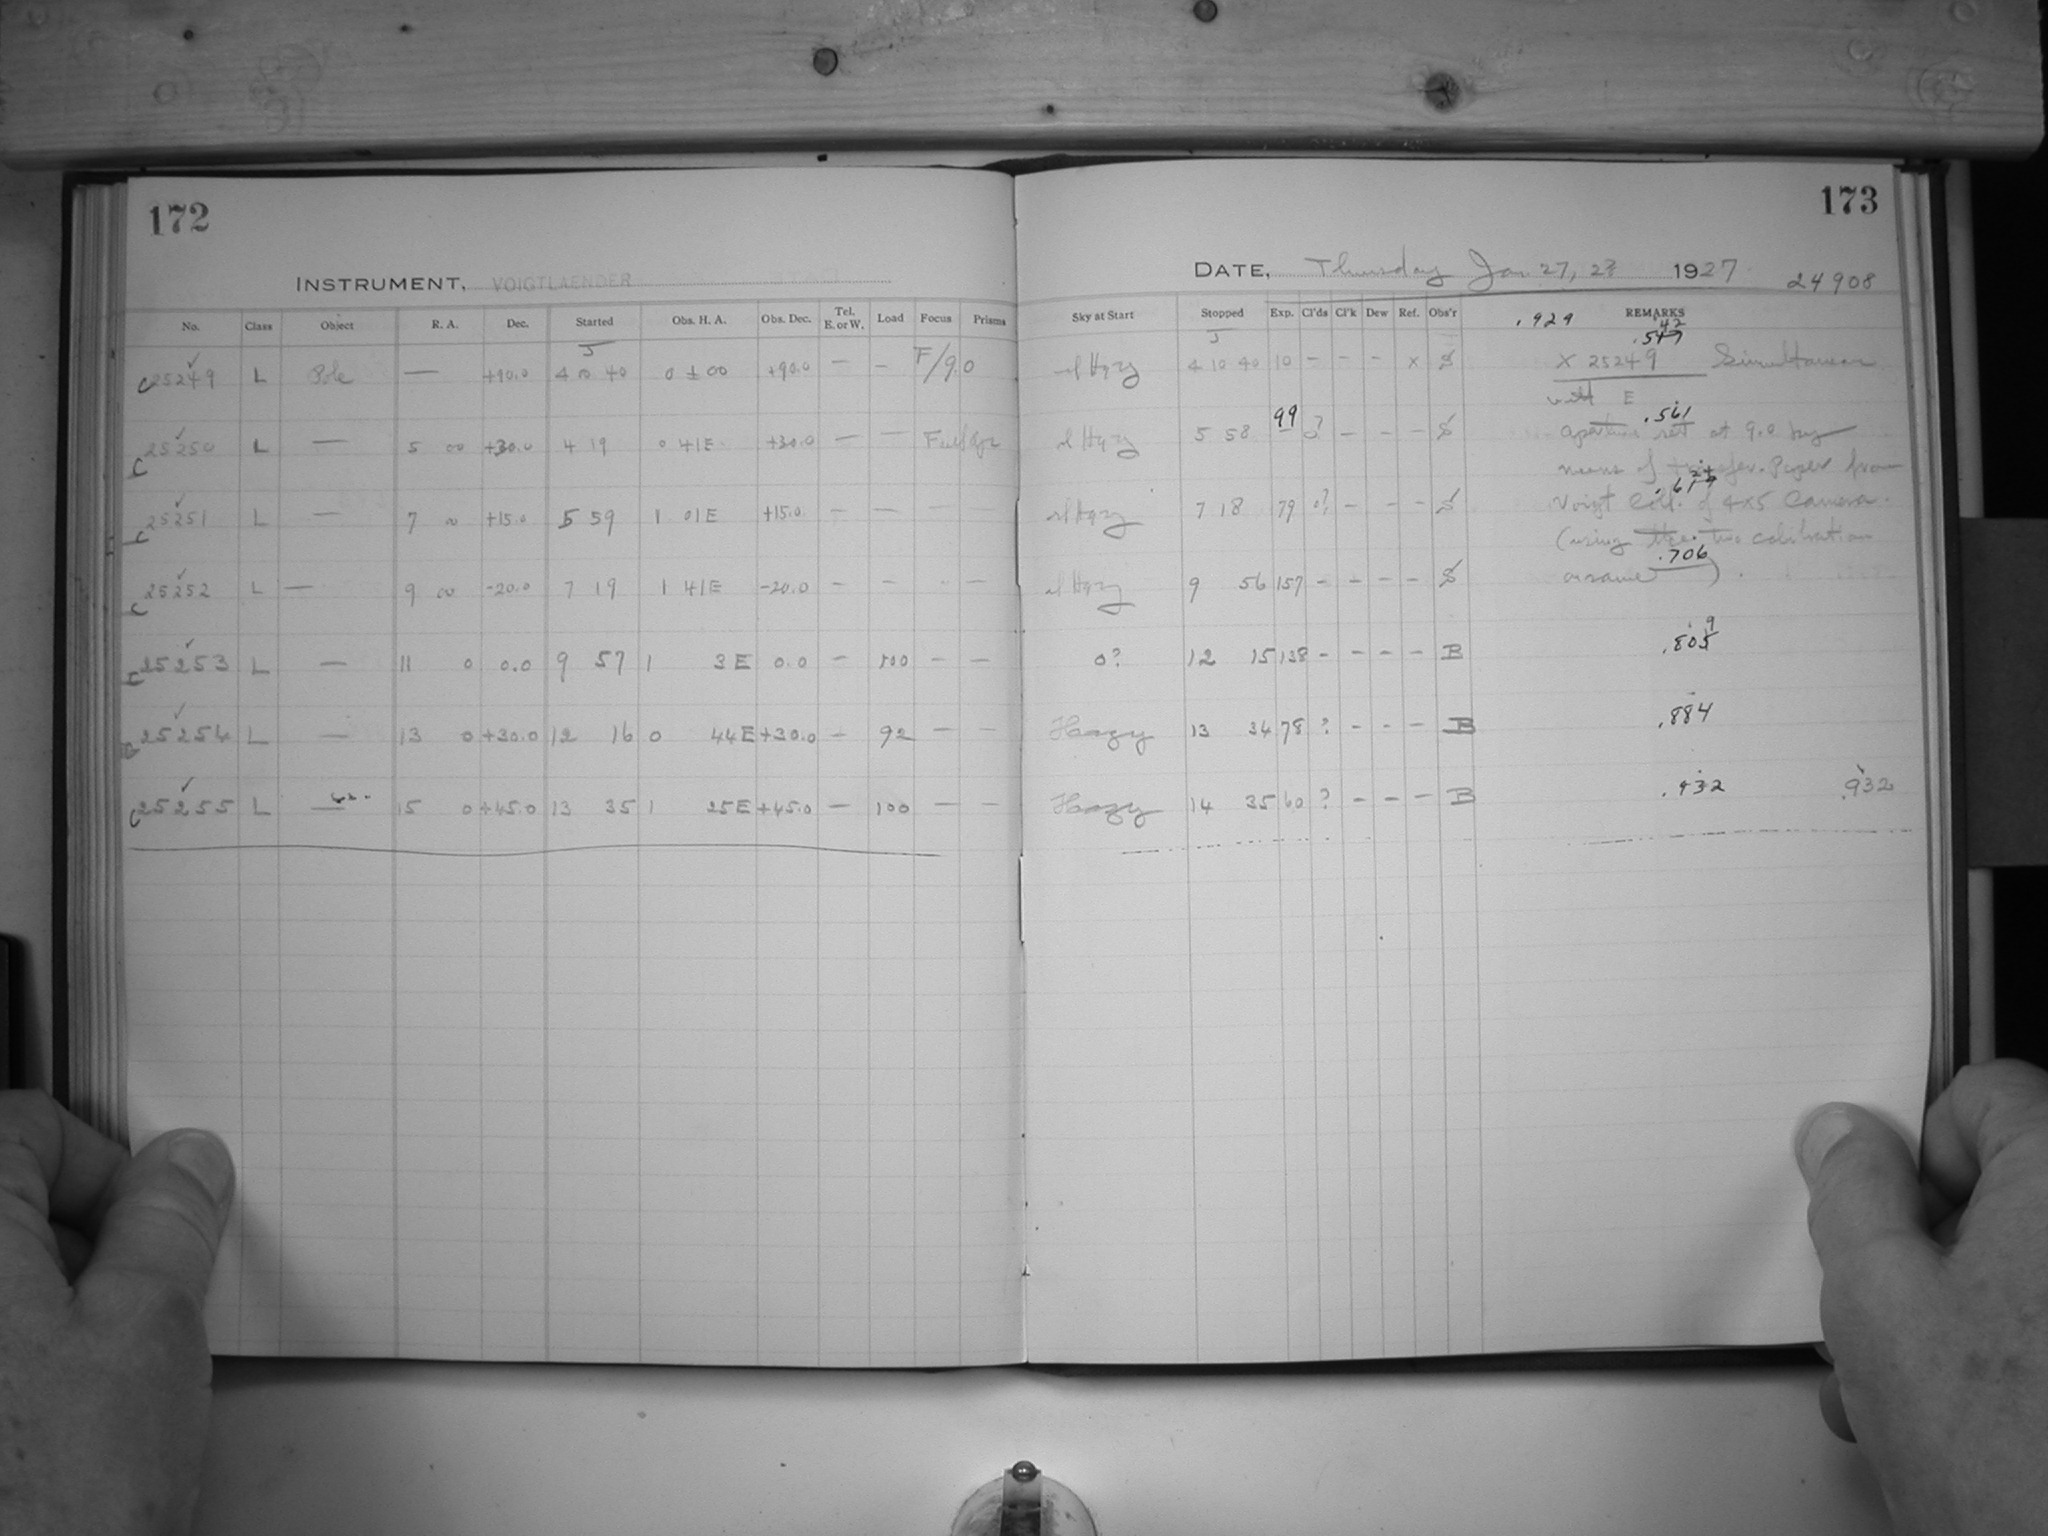 172
INSTRUMENT, VOIGTLAENDER
No. Class Object R. A. Dec. Started Obs. H. A. Obs. Dec. Tel. E. or W. Load Focus Prisms
C 25249 ✓ L Pole — +90.0 4 10 40 0 ± 00 +90.0 — — F/9.0
C 25250 ✓ L — 5 00 +30.0 4 19 0 41E +30.0 — —
C 25251 ✓ L — 7 00 +15.0 5 59 1 01E +15.0 — — — —
C 25252 ✓ L — 9 00 -20.0 7 19 1 41E -20.0 — — - —
C 25253 ✓ L — 11 0 0.0 9 57 1 3E 0.0 — 100 — —
25254 ✓ L — 13 0 +30.0 12 16 0 44E +30.0 — 92 — —
C 25255 ✓ L — 15 0 +45.0 13 35 1 25E +45.0 — 100 — —
173
DATE, Thursday Jan 27, 28 1927 24908
Sky at Start Stopped Exp. Cl'ds Cl'k Dew Ref. Obs'r REMARKS
.929
sl Hazy 4 10 40 10 — — — x S X 25249 Simultaneous
with E
.561
sl Hazy 5 58 99 0? — — — S aperture set at 9.0 by
means of transfer. Paper from
sl Hazy 7 18 79 0? — — — S Voigt Coll. of 4x5 Camera.
(using the two calibration
.706
sl Hazy 9 56 157 — — — — S
0? 12 15 138 — — — — B .805 9
Hazy 13 34 78 ? — — — B .884
Hazy 14 35 60 ? — — — B .932 .932